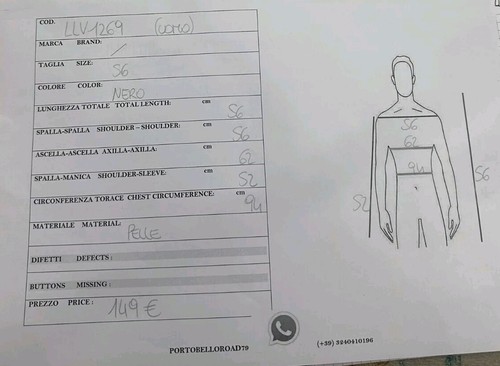 COD. LLV1269 (UOMO)
MARCA BRAND: /
TAGLIA SIZE: 56
COLORE COLOR: NERO
LUNGHEZZA TOTALE TOTAL LENGTH: cm 56
SPALLA-SPALLA SHOULDER – SHOULDER: cm 56
ASCELLA-ASCELLA AXILLA-AXILLA: cm 62
SPALLA-MANICA SHOULDER-SLEEVE: cm 52
CIRCONFERENZA TORACE CHEST CIRCUMFERENCE: cm 94
MATERIALE MATERIAL: PELLE
DIFETTI DEFECTS:
BUTTONS MISSING:
PREZZO PRICE: 149 €
56
62
94
52
56
PORTOBELLOROAD79
(+39) 3240410196